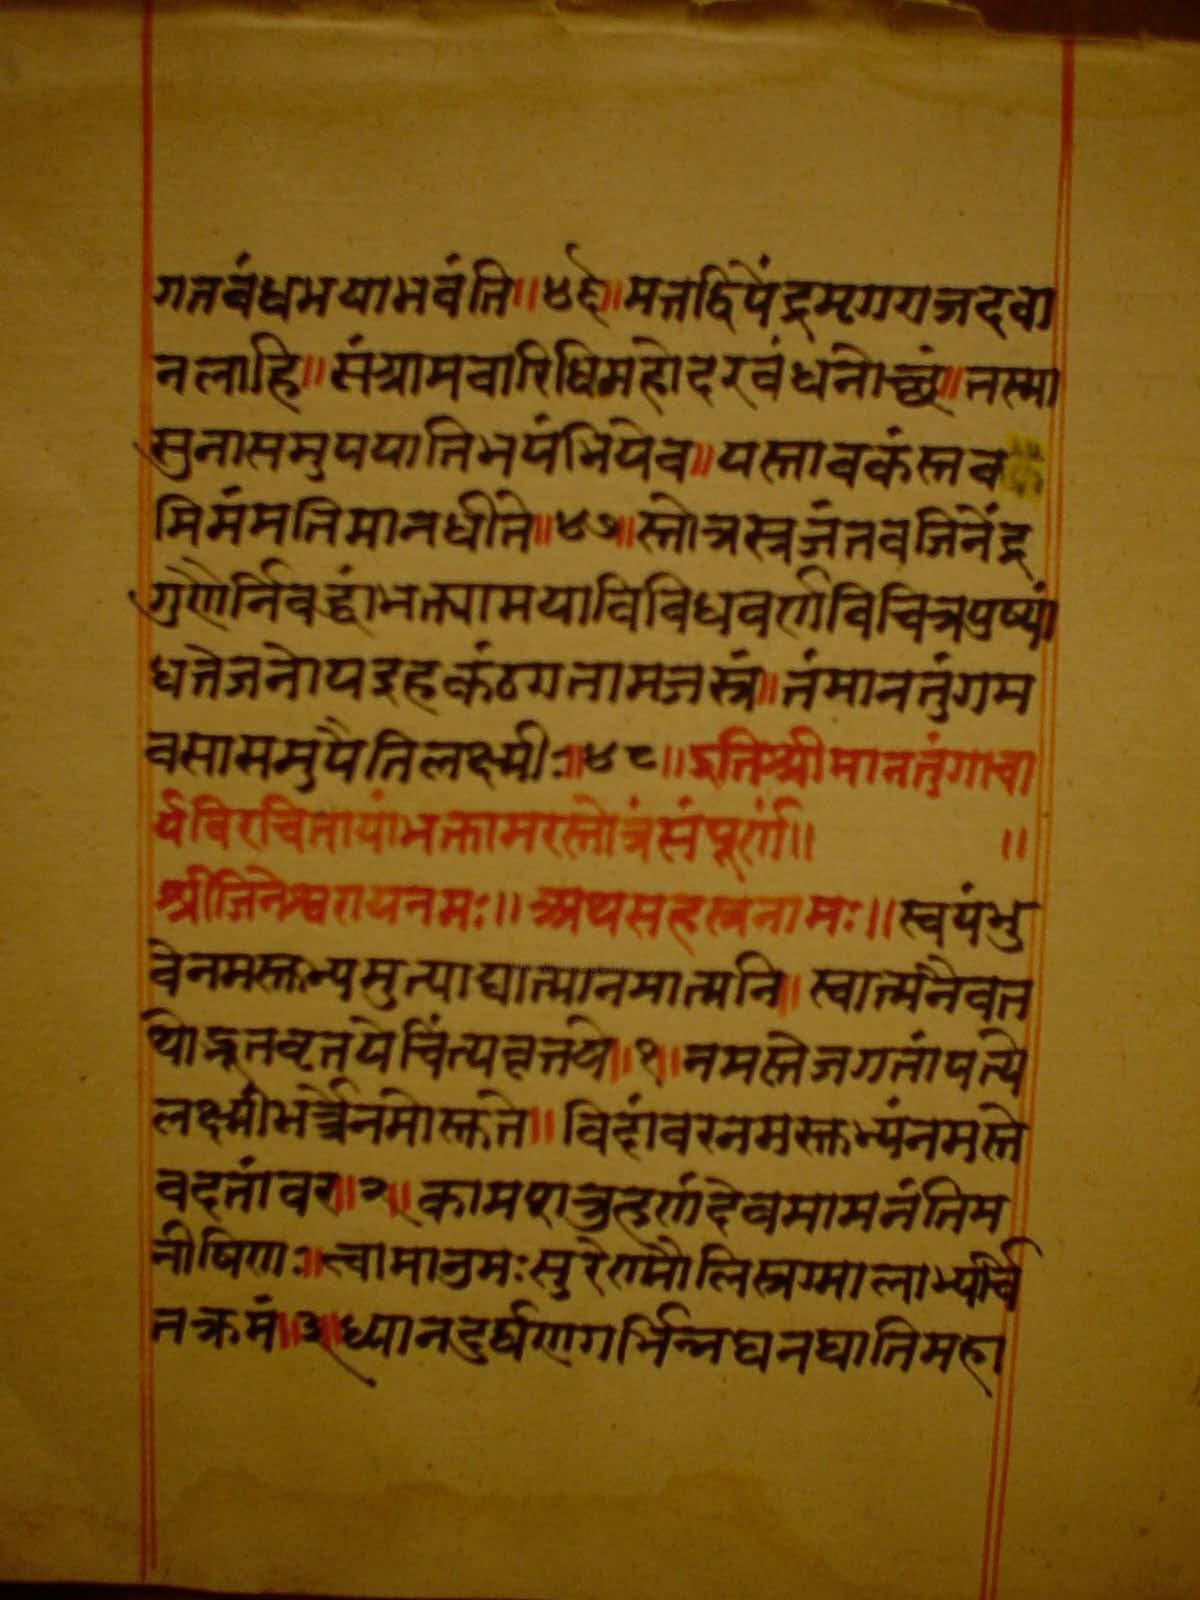 गतबंधभयाभवंति॥४६॥मत्तद्विपेंद्रमृगराजदवा
नलाहि॥संग्रामवारिधिमहोदरबंधनोच्छं॥तस्मा
सुनासमुपयातिभयंभियेव॥यस्तावकंस्तव
मिमंमतिमानधीते॥४७॥स्तोत्रस्त्रजंतवजिनेंद्र
गुणैर्निबद्धांभक्त्यामयाविविधवर्णविचित्रपुष्पां
धत्तेजनोयइहकंठगतामजस्त्रं॥तंमानतुंगम
वसासमुपैतिलक्ष्मीः॥४८॥इतिश्रीमानतुंगाचा
र्यविरचितायांभक्तामरस्तोत्रंसंपूर्णं॥ ॥
श्रीजिनेश्वरायनमः॥अथसहस्त्रनामः॥स्वयंभु
वेनमस्तुभ्यमुत्पाद्यात्मानमात्मनि॥स्वात्मनैवत
थोद्भूतवृत्तयेचिंत्यवृत्तये॥१॥नमस्तेजगतांपत्ये
लक्ष्मीभर्त्रेनमोस्तुते॥विदांवरनमस्तुभ्यंनमस्ते
वदतांवर॥२॥कामशत्रुहणंदेवमामनंतिम
नीषिणः॥त्वामानुमःसुरेणमौलिस्त्रग्मालाभ्यर्चि
तक्रमं॥३॥ध्यानदुर्घणगर्भिन्नघनघातिमहा